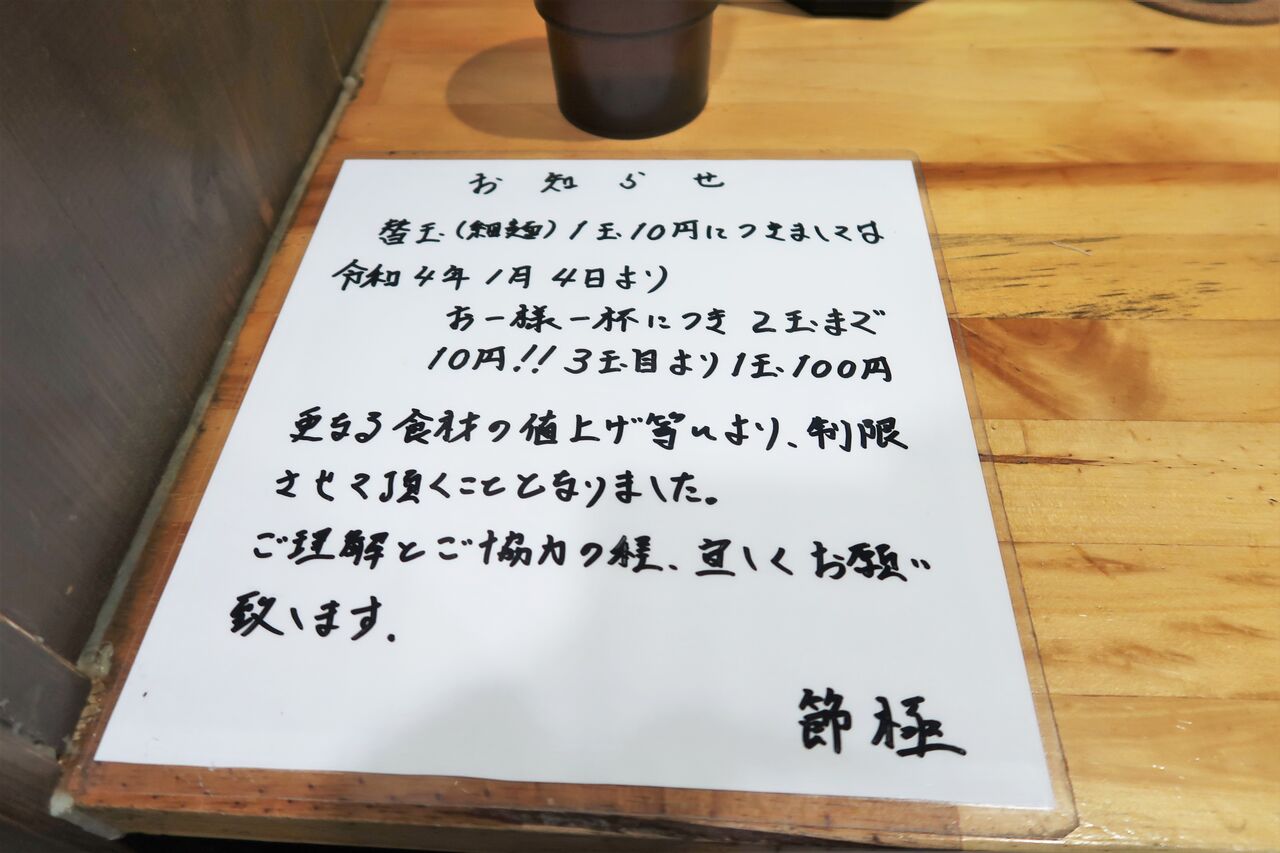 お知らせ
替玉(細麺)1玉10円につきましては
令和4年1月4日より
お一様一杯につき2玉まで
10円!!3玉目より1玉100円
更なる食材の値上げ等により、制限
させて頂くこととなりました。
ご理解とご協力の程、宜しくお願い
致します。
節極